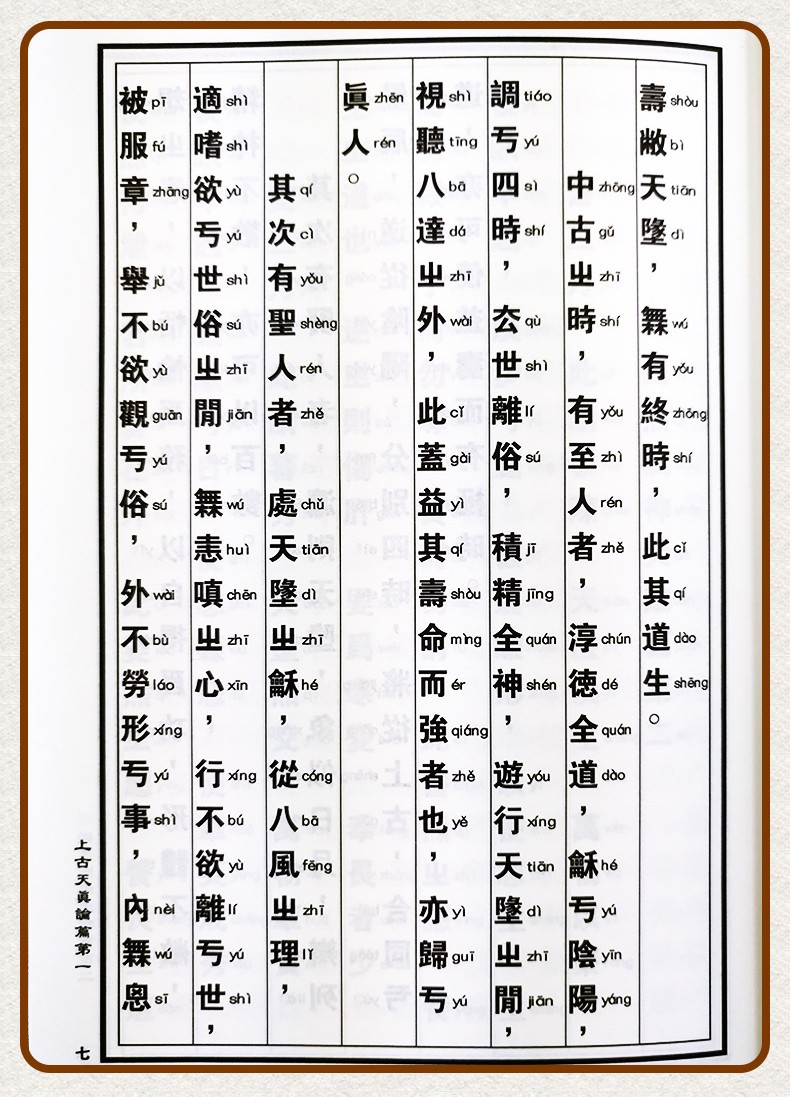 壽shòu 敝bì 天tiān 墬dì ， 橆wú 有yǒu 終zhōng 時shí ， 此cǐ 其qí 道dào 生shēng 。
中zhōng 古gǔ 㞢zhī 時shí ， 有yǒu 至zhì 人rén 者zhě ， 淳chún 徳dé 全quán 道dào ， 龢hé 亏yú 陰yīn 陽yáng ，
調tiáo 亏yú 四sì 時shí ， 厺qù 世shì 離lí 俗sú ， 積jī 精jīng 全quán 神shén ， 遊yóu 行xíng 天tiān 墬dì 㞢zhī 閒jiān ，
視shì 聽tīng 八bā 達dá 㞢zhī 外wài ， 此cǐ 蓋gài 益yì 其qí 壽shòu 命mìng 而ér 強qiáng 者zhě 也yě ， 亦yì 歸guī 亏yú
眞zhēn 人rén 。
其qí 次cì 有yǒu 聖shèng 人rén 者zhě ， 處chǔ 天tiān 墬dì 㞢zhī 龢hé ， 從cóng 八bā 風fēng 㞢zhī 理lǐ ，
適shì 嗜shì 欲yù 亏yú 世shì 俗sú 㞢zhī 閒jiān ， 橆wú 恚huì 嗔chēn 㞢zhī 心xīn ， 行xíng 不bú 欲yù 離lí 亏yú 世shì ，
被pī 服fú 章zhāng ， 舉jǔ 不bú 欲yù 觀guān 亏yú 俗sú ， 外wài 不bù 勞láo 形xíng 亏yú 事shì ， 內nèi 橆wú 恖sī
上古天眞論篇第一
七